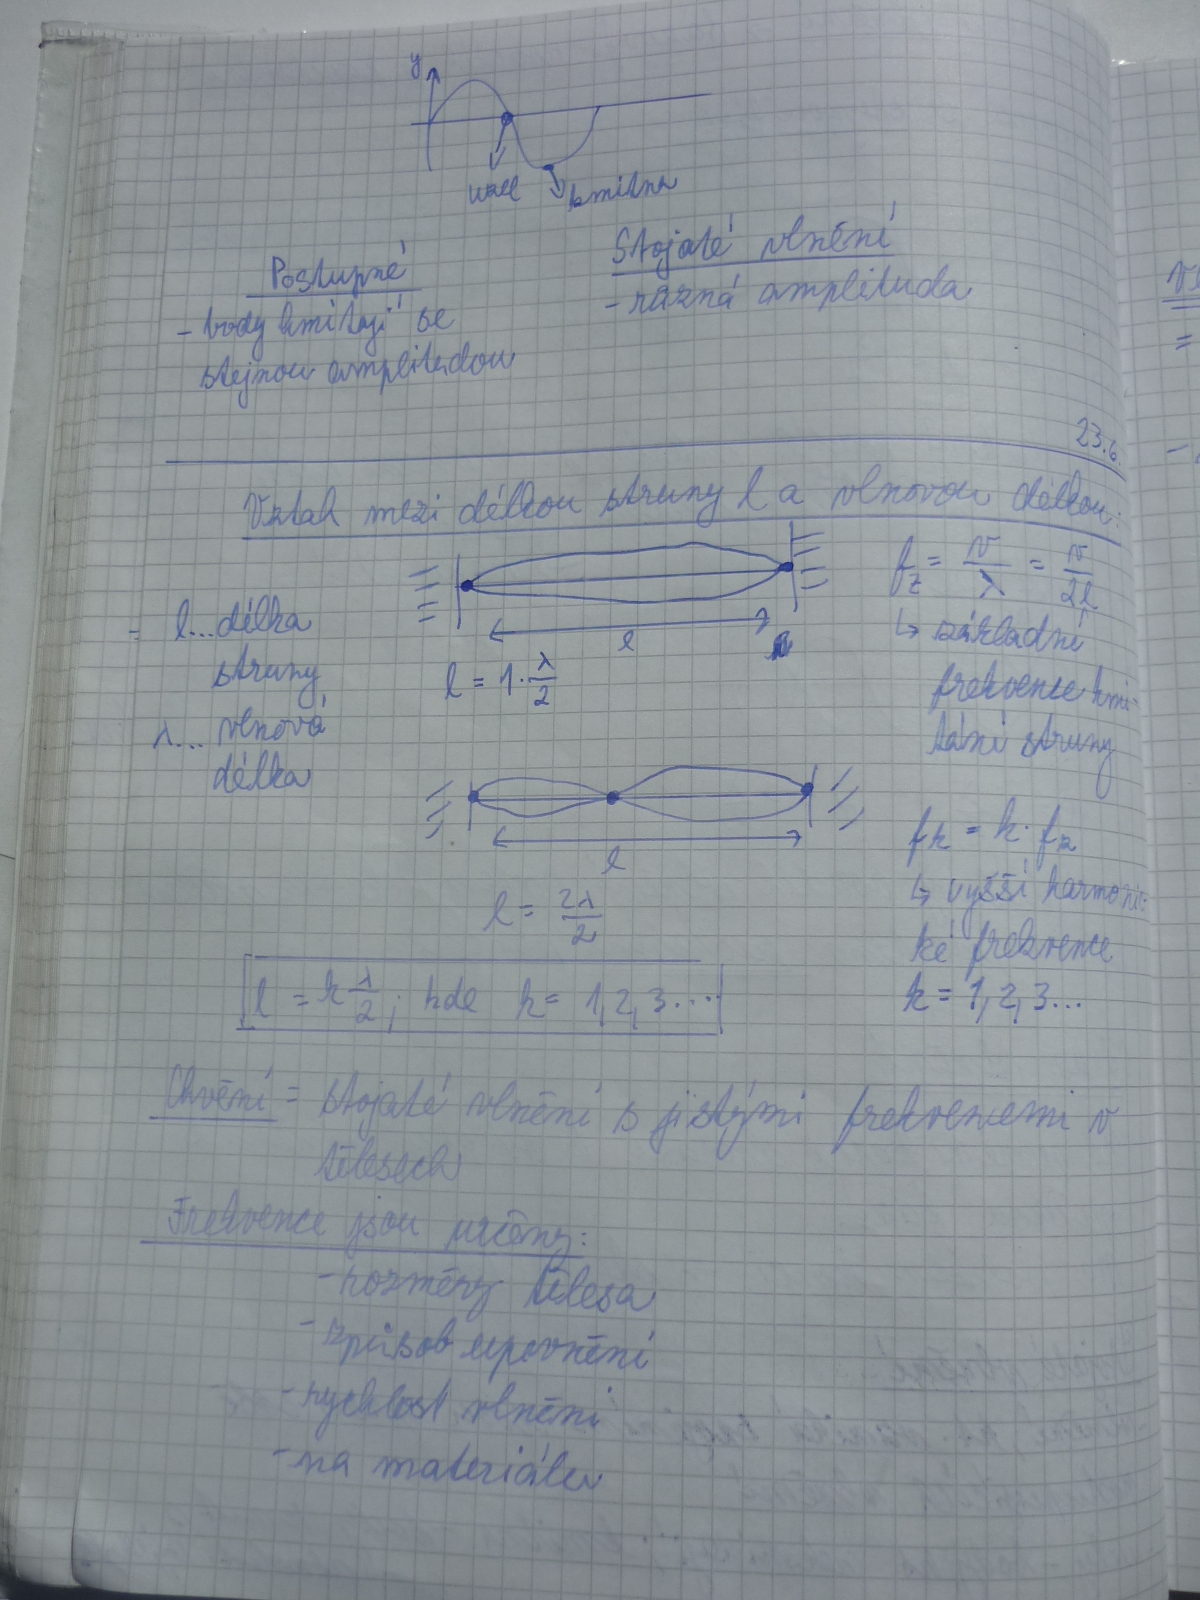 y
uzel
kmitna
Postupné
- body kmitají se
stejnou amplitudou
Stojaté vlnění
- různá amplituda
23.6.
Vztah mezi délkou struny l a vlnovou délkou:
l... délka
struny
λ... vlnová
délka
l
l = 1·λ/2
f_z = v/λ = v/2l
↳ základní
frekvence kmi-
tání struny
l
l = 2λ/2
l = k λ/2 ; kde k = 1, 2, 3....
f_k = k · f_z
↳ vyšší harmonic-
ké frekvence
k = 1, 2, 3...
Chvění = stojaté vlnění s jistými frekvencemi v
tělesech
Frekvence jsou určeny:
- rozměry tělesa
- způsob upevnění
- rychlost vlnění
- na materiálu